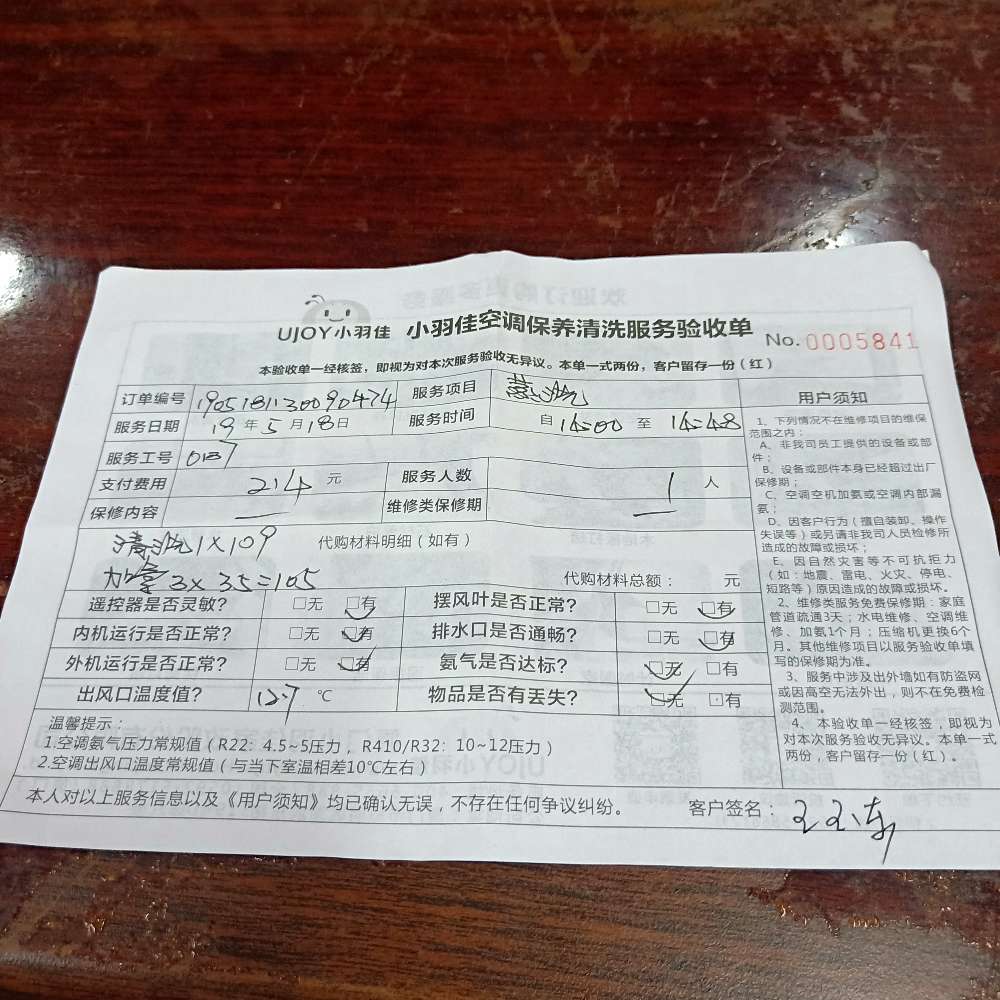 UJOY小羽佳 小羽佳空调保养清洗服务验收单 No. 0005841
本验收单一经核签，即视为对本次服务验收无异议。本单一式两份，客户留存一份（红）
订单编号 190518113009 0474 服务项目
服务日期 19年5月18日 服务时间 自14:00至14:48
服务工号 0137
支付费用 214 元 服务人数 1 人
保修内容 — 维修类保修期 —
清洗1×109 代购材料明细（如有）
3×35=105 代购材料总额： 元
遥控器是否灵敏？ □无 □有 摆风叶是否正常？ □无 □有
内机运行是否正常？ □无 □有 排水口是否通畅？ □无 □有
外机运行是否正常？ □无 □有 氨气是否达标？ □无 □有
出风口温度值？ 12.7 ℃ 物品是否有丢失？ □无 □有
温馨提示：
1.空调氨气压力常规值（R22：4.5~5压力，R410/R32：10~12压力）
2.空调出风口温度常规值（与当下室温相差10℃左右）
本人对以上服务信息以及《用户须知》均已确认无误，不存在任何争议纠纷。 客户签名：
用户须知
1、下列情况不在维修项目的维保
范围之内：
A、非我司员工提供的设备或部
件；
B、设备或部件本身已经超过出厂
保修期；
C、空调空机加氨或空调内部漏
氨；
D、因客户行为（擅自装卸、操作
失误等）或另请非我司人员检修所
造成的故障或损坏；
E、因自然灾害等不可抗拒力
（如：地震、雷电、火灾、停电、
短路等）原因造成的故障或损坏。
2、维修类服务免费保修期：家庭
管道疏通3天；水电维修、空调维
修、加氨1个月；压缩机更换6个
月。其他维修项目以服务验收单填
写的保修期为准。
3、服务中涉及出外墙如有防盗网
或因高空无法外出，则不在免费检
测范围。
4、本验收单一经核签，即视为
对本次服务验收无异议。本单一式
两份，客户留存一份（红）。